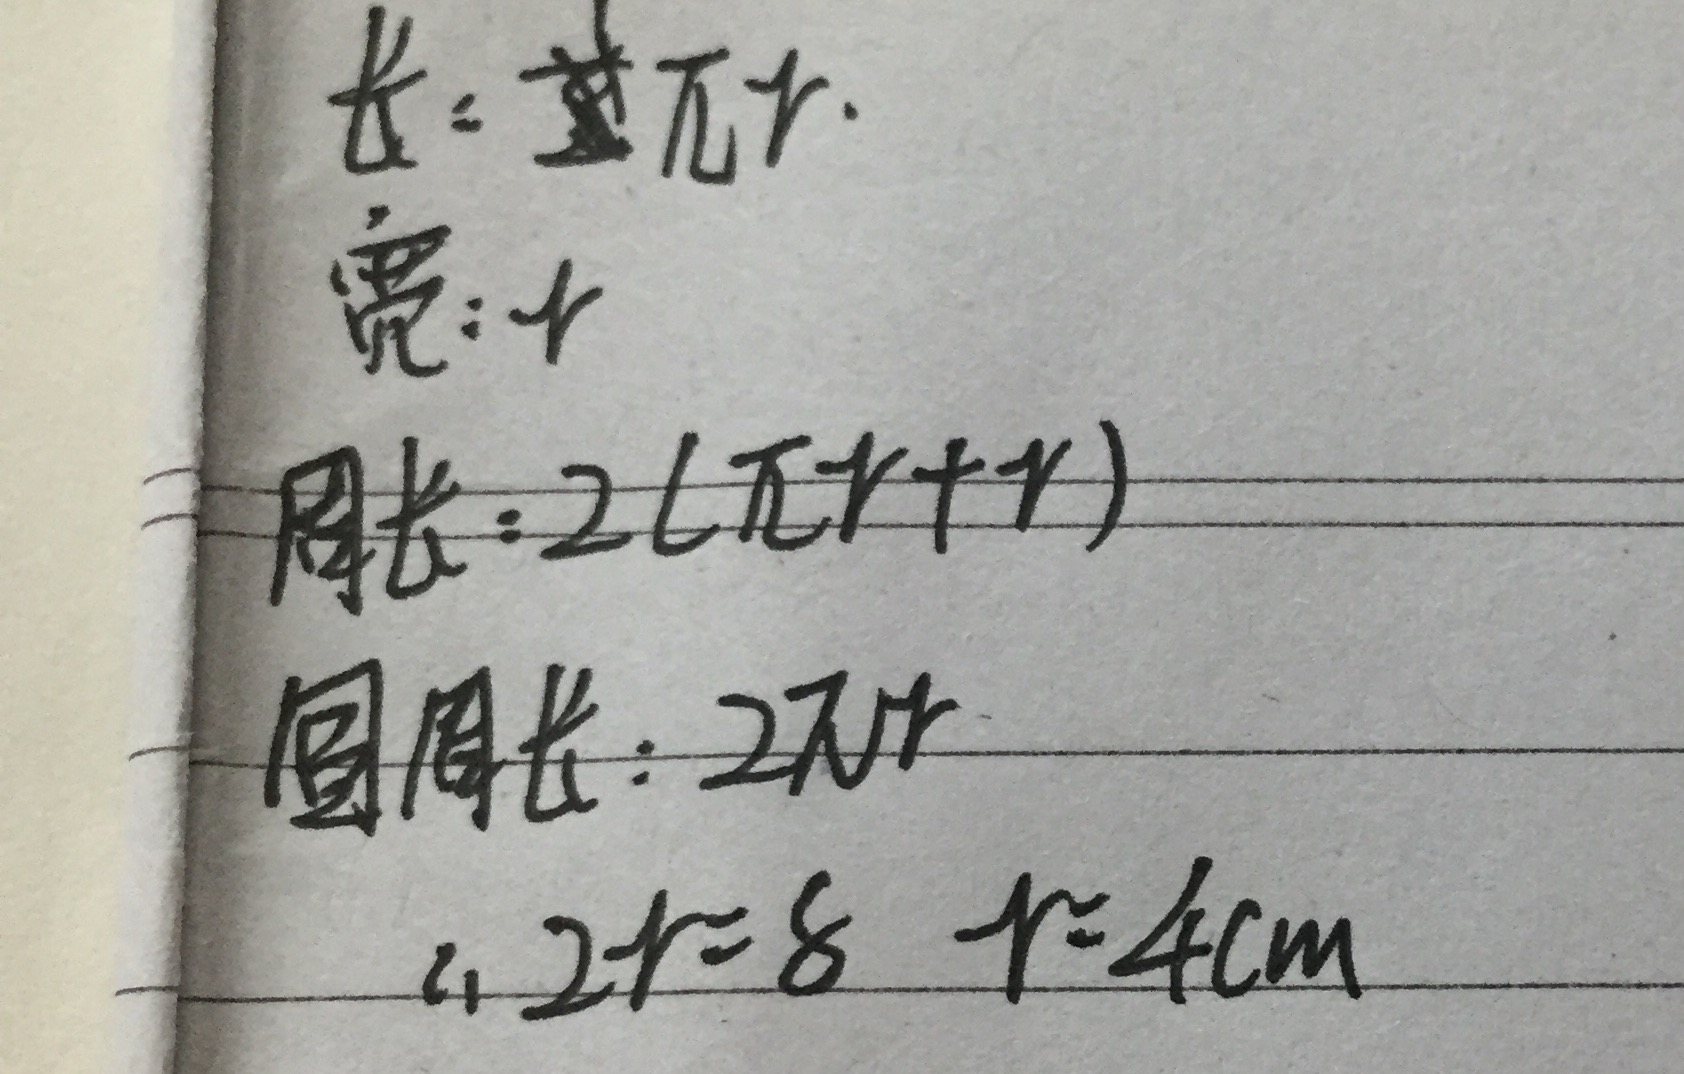 长:πr.
宽:r
周长:2(πr+r)
圆周长:2πr
∴2r=8 r=4cm